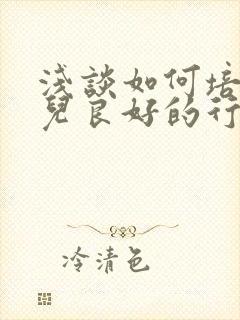 淺談如何培
兒良好的行
冷清色